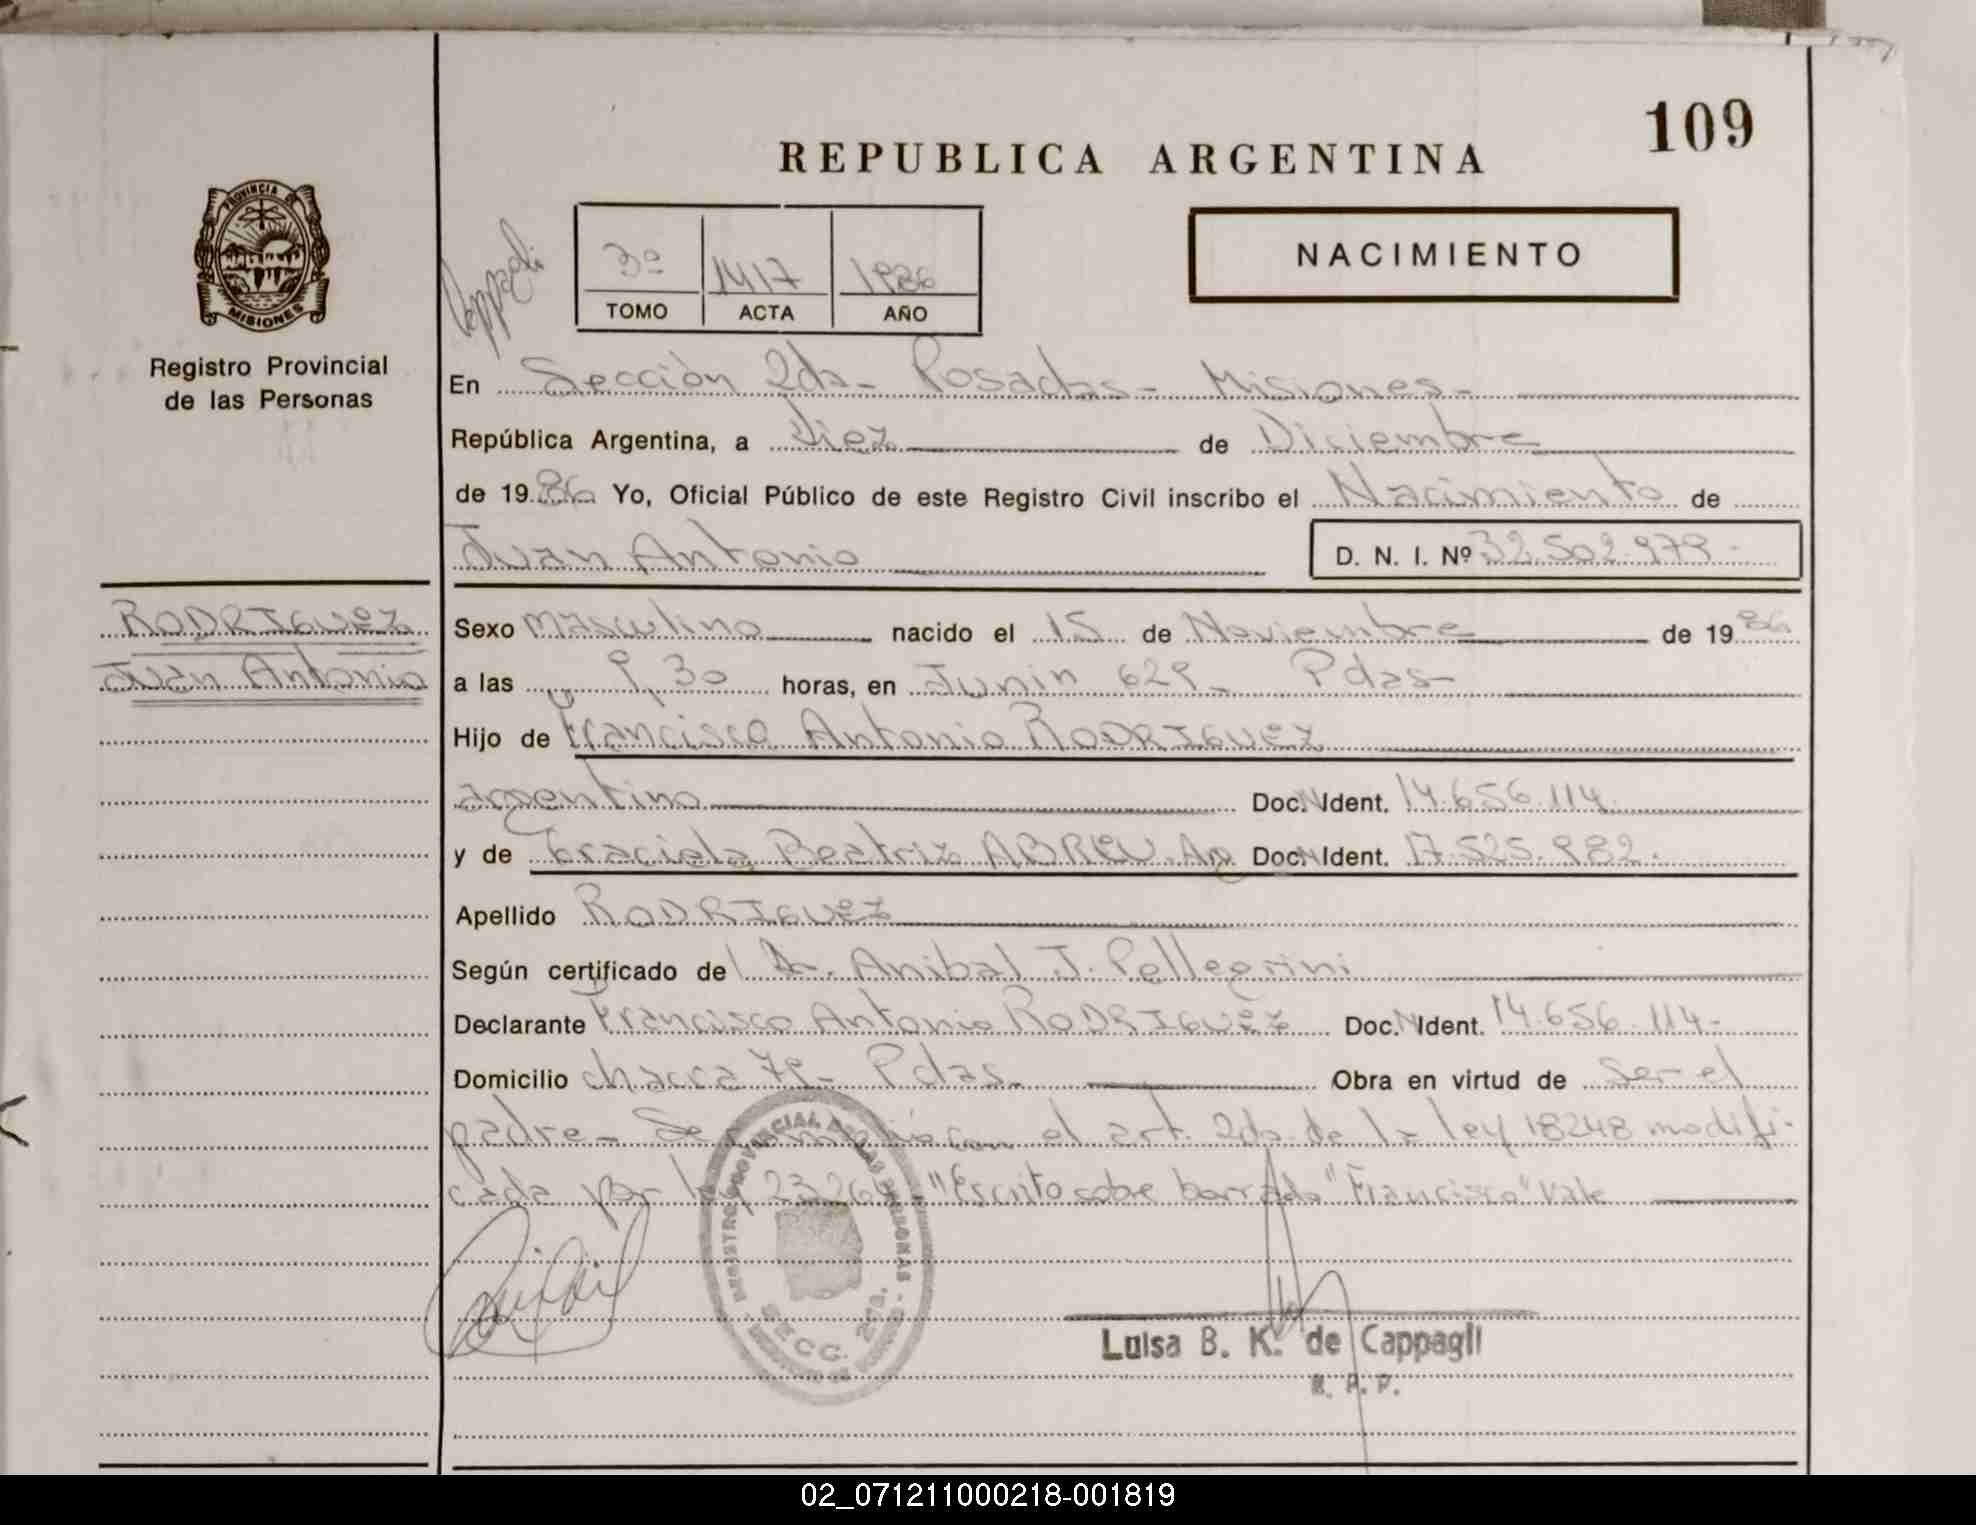 109
REPUBLICA ARGENTINA
NACIMIENTO
3º 1417 1986
TOMO ACTA AÑO
PROVINCIA DE
MISIONES
Registro Provincial
de las Personas
En Sección 2da - Posadas - Misiones -
República Argentina, a diez de Diciembre
de 1986 Yo, Oficial Público de este Registro Civil inscribo el Nacimiento de
Juan Antonio D. N. I. Nº 32.502.979 -
RODRIGUEZ
Juan Antonio
Sexo masculino nacido el 15 de Noviembre de 1986
a las 9,30 horas, en Junin 629 - Pdas -
Hijo de Francisco Antonio RODRIGUEZ
argentino Doc. N Ident. 14.656.114
y de Graciela Beatriz ABREU Arg Doc. N Ident. 17.525.982.
Apellido RODRIGUEZ
Según certificado del Dr. Anibal J. Pellegrini
Declarante Francisco Antonio RODRIGUEZ Doc. N Ident. 14.656.114 -
Domicilio chacra 79 - Pdas. Obra en virtud de ser el
padre - Se con el art. 2do. de la ley 18248 modifi-
cada por ley "Escrito sobre borrado "Francisco" Vale
REGISTRO PROVINCIAL DE LAS PERSONAS
SECC. 2da.
Luisa B. K. de Cappagli
R. P. P.
02_071211000218-001819